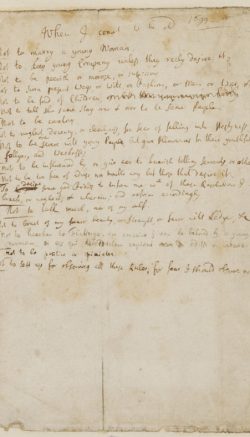 When I come to be old. 1699.
Not to marry a young Woman.
Not to keep young Company unless they reely desire it.
Not to be peevish or morose, or suspicious.
Not to scorn present Ways, or Wits, or Fashions, or Men, or War, &c.
Not to be fond of Children,
Not to tell the same Story over & over to the same People.
Not to be covetous.
Not to neglect decency, or cleenlyness, for fear of falling into Nastyness.
Not to be over severe with young People, but give Allowances for their youthfull
follyes, and Weeknesses.
Not to be influenced by, or give ear to knavish tatling Servants, or others.
Not to be too free of advise nor trouble any but those that desire it.
To desire some good Friends to inform me wch of these Resolutions I
break, or neglect, & wherein; and reform accordingly.
Not to talk much, nor of my self.
Not to boast of my former beauty, or strength, or favor with Ladyes, &c.
Not to hearken to Flatteryes, nor conceive I can be beloved by a young
woman.
Not to be positive or opiniatre.
Not to sett up for observing all these Rules, for fear I should observe